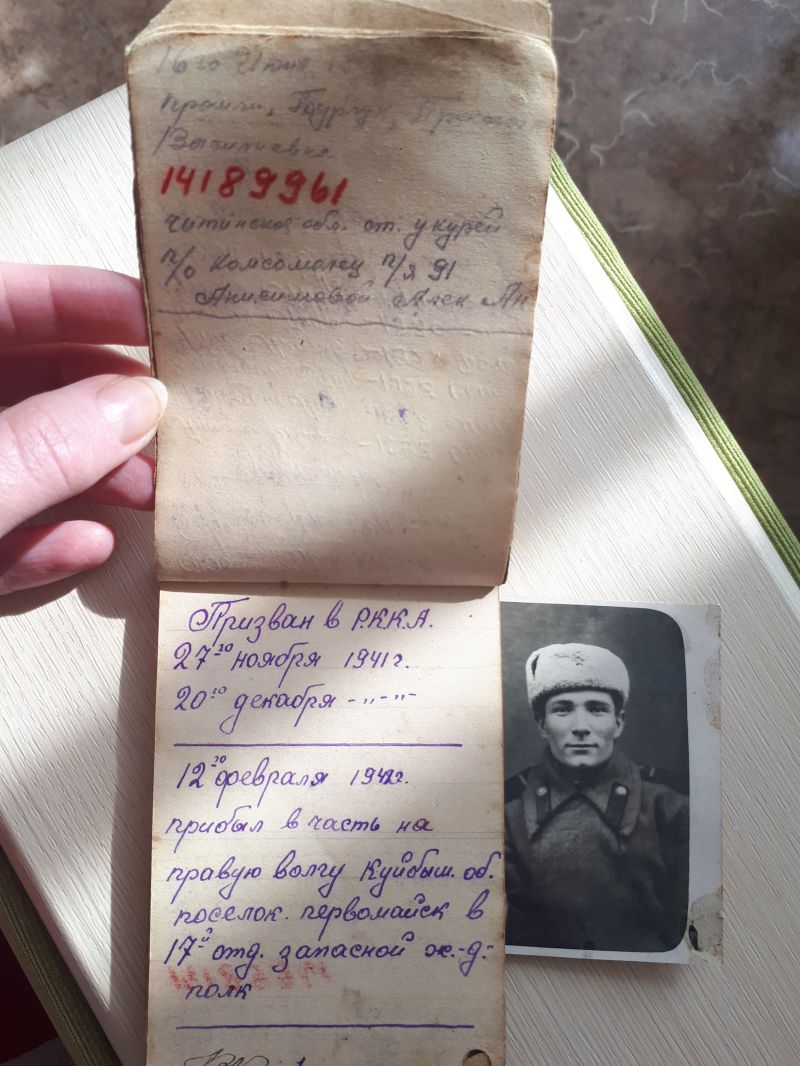 16го Июня
Васильевна
14189961
Читинская обл. ст. Укурей
п/о Комсомолец п/я 91
Анисимовой Алек Ан
Призван в Р.К.К.А.
27го ноября 1941 г.
20го декабря -„-„-
12го февраля 1942г.
прибыл в часть на
правую волгу Куйбыш. об.
поселок. первомайск в
17й отд. запасной ж.-д.-
полк